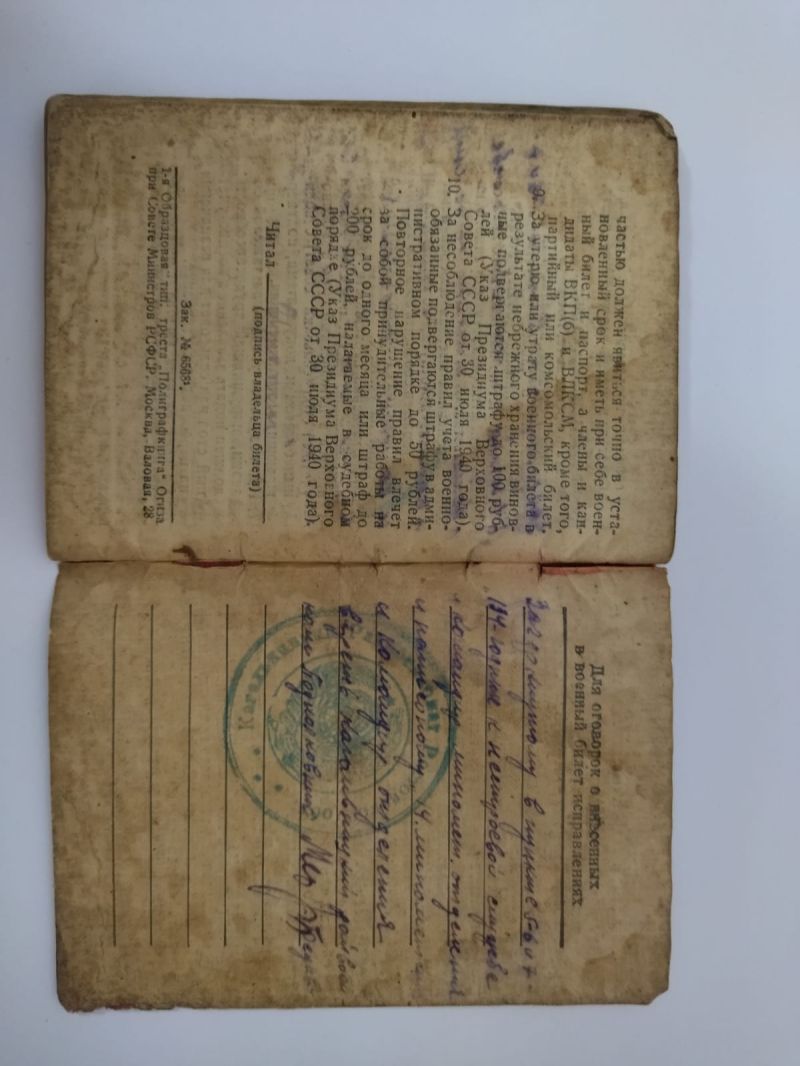 частью должен явиться точно в уста-
новленный срок и иметь при себе воен-
ный билет и паспорт, а члены и кан-
дидаты ВКП(б) и ВЛКСМ, кроме того,
партийный или комсомольский билет.
9. За утерю или утрату военного билета в
результате небрежного хранения винов-
ные подвергаются штрафу до 100 руб-
лей (Указ Президиума Верховного
Совета СССР от 30 июля 1940 года).
10. За несоблюдение правил учета военно-
обязанные подвергаются штрафу в адми-
нистративном порядке до 50 рублей.
Повторное нарушение правил влечет
за собой принудительные работы на
срок до одного месяца или штраф до
200 рублей, налагаемые в судебном
порядке (Указ Президиума Верховного
Совета СССР от 30 июля 1940 года).
Читал
(подпись владельца билета)
Зак. № 6508
1-я Образцовая тип. треста „Полиграфкнига“ Огиза
при Совете Министров РСФСР. Москва, Валовая, 28
Для оговорок о внесенных
в военный билет исправлениях
в пункте
134 годные к нестроевой службе
команду миномет. отделения
и
и Командир отделения